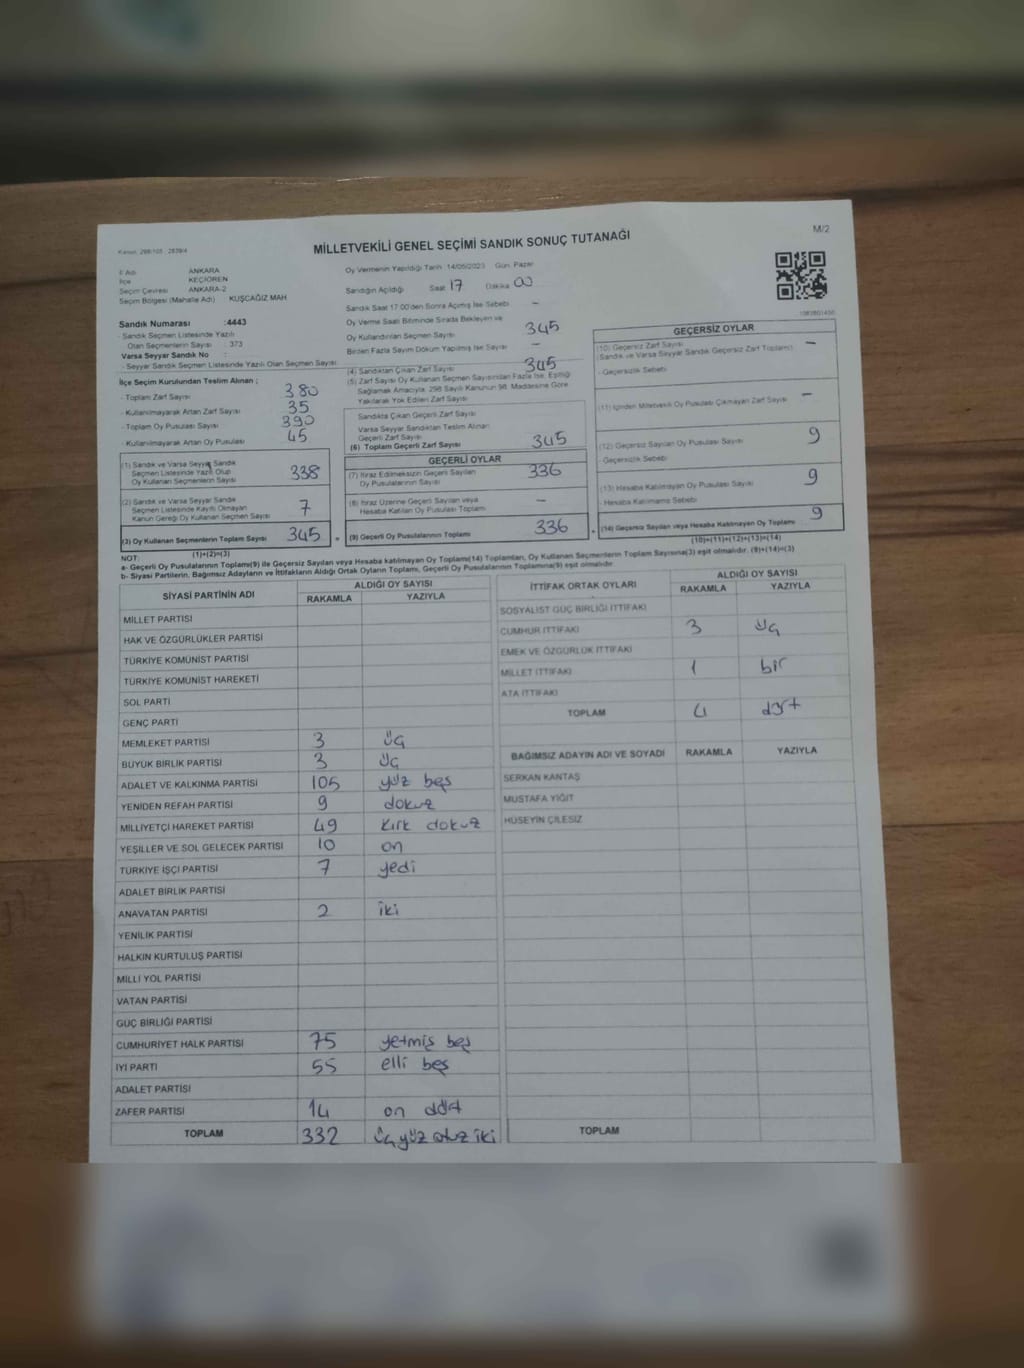 Kanun: 298/105 - 2839/4
MİLLETVEKİLİ GENEL SEÇİMİ SANDIK SONUÇ TUTANAĞI
M/2
İl Adı ANKARA
İlçe KEÇİÖREN
Seçim Çevresi ANKARA-2
Seçim Bölgesi (Mahalle Adı) KUŞCAĞIZ MAH.
Oy Vermenin Yapıldığı Tarih : 14/05/2023 Gün: Pazar
Sandığın Açıldığı Saat 17 Dakika 00
Sandık Saat 17.00'den Sonra Açılmış İse Sebebi -
Oy Verme Saati Bitiminde Sırada Bekleyen ve
Oy Kullandırılan Seçmen Sayısı 345
Birden Fazla Sayım Döküm Yapılmış İse Sayısı -
Sandık Numarası :4443
- Sandık Seçmen Listesinde Yazılı
Olan Seçmenlerin Sayısı : 373
Varsa Seyyar Sandık No :
- Seyyar Sandık Seçmen Listesinde Yazılı Olan Seçmen Sayısı
İlçe Seçim Kurulundan Teslim Alınan ;
- Toplam Zarf Sayısı 380
- Kullanılmayarak Artan Zarf Sayısı 35
- Toplam Oy Pusulası Sayısı 390
- Kullanılmayarak Artan Oy Pusulası 45
(1) Sandık ve Varsa Seyyar Sandık
Seçmen Listesinde Yazılı Olup
Oy Kullanan Seçmenlerin Sayısı 338
(2) Sandık ve Varsa Seyyar Sandık
Seçmen Listesinde Kayıtlı Olmayan
Kanun Gereği Oy Kullanan Seçmen Sayısı 7
(3) Oy Kullanan Seçmenlerin Toplam Sayısı 345
(1)+(2)=(3)
(4) Sandıktan Çıkan Zarf Sayısı 345
(5) Zarf Sayısı Oy Kullanan Seçmen Sayısından Fazla İse, Eşitliği
Sağlamak Amacıyla, 298 Sayılı Kanunun 98. Maddesine Göre
Yakılarak Yok Edilen Zarf Sayısı
Sandıkta Çıkan Geçerli Zarf Sayısı
Varsa Seyyar Sandıktan Teslim Alınan
Geçerli Zarf Sayısı
(6) Toplam Geçerli Zarf Sayısı 345
GEÇERLİ OYLAR
(7) İtiraz Edilmeksizin Geçerli Sayılan
Oy Pusulalarının Sayısı 336
(8) İtiraz Üzerine Geçerli Sayılan veya
Hesaba Katılan Oy Pusulası Toplamı -
= (9) Geçerli Oy Pusulalarının Toplamı 336
GEÇERSİZ OYLAR
(10) Geçersiz Zarf Sayısı -
(Sandık ve Varsa Seyyar Sandık Geçersiz Zarf Toplamı)
- Geçersizlik Sebebi
(11) İçinden Milletvekili Oy Pusulası Çıkmayan Zarf Sayısı -
(12) Geçersiz Sayılan Oy Pusulası Sayısı 9
- Geçersizlik Sebebi
(13) Hesaba Katılmayan Oy Pusulası Sayısı 9
- Hesaba Katılmama Sebebi
+ (14) Geçersiz Sayılan veya Hesaba Katılmayan Oy Toplamı 9
(10)+(11)+(12)+(13)=(14)
NOT:
a- Geçerli Oy Pusulalarının Toplamı(9) ile Geçersiz Sayılan veya Hesaba Katılmayan Oy Toplamı(14) Toplamları, Oy Kullanan Seçmenlerin Toplam Sayısına(3) eşit olmalıdır. (9)+(14)=(3)
b- Siyasi Partilerin, Bağımsız Adayların ve İttifakların Aldığı Ortak Oyların Toplamı, Geçerli Oy Pusulalarının Toplamına(9) eşit olmalıdır.
SİYASİ PARTİNİN ADI ALDIĞI OY SAYISI
RAKAMLA YAZIYLA
MİLLET PARTİSİ
HAK VE ÖZGÜRLÜKLER PARTİSİ
TÜRKİYE KOMÜNİST PARTİSİ
TÜRKİYE KOMÜNİST HAREKETİ
SOL PARTİ
GENÇ PARTİ
MEMLEKET PARTİSİ 3 üç
BÜYÜK BİRLİK PARTİSİ 3 üç
ADALET VE KALKINMA PARTİSİ 105 yüz beş
YENİDEN REFAH PARTİSİ 9 dokuz
MİLLİYETÇİ HAREKET PARTİSİ 49 kırk dokuz
YEŞİLLER VE SOL GELECEK PARTİSİ 10 on
TÜRKİYE İŞÇİ PARTİSİ 7 yedi
ADALET BİRLİK PARTİSİ
ANAVATAN PARTİSİ 2 iki
YENİLİK PARTİSİ
HALKIN KURTULUŞ PARTİSİ
MİLLİ YOL PARTİSİ
VATAN PARTİSİ
GÜÇ BİRLİĞİ PARTİSİ
CUMHURİYET HALK PARTİSİ 75 yetmiş beş
İYİ PARTİ 55 elli beş
ADALET PARTİSİ
ZAFER PARTİSİ 14 on dört
TOPLAM 332 üçyüz otuz iki
İTTİFAK ORTAK OYLARI ALDIĞI OY SAYISI
RAKAMLA YAZIYLA
SOSYALİST GÜÇ BİRLİĞİ İTTİFAKI
CUMHUR İTTİFAKI 3 üç
EMEK VE ÖZGÜRLÜK İTTİFAKI
MİLLET İTTİFAKI 1 bir
ATA İTTİFAKI
TOPLAM 4 dört
BAĞIMSIZ ADAYIN ADI VE SOYADI RAKAMLA YAZIYLA
SERKAN KANTAŞ
MUSTAFA YİĞİT
HÜSEYİN ÇİLESİZ
TOPLAM